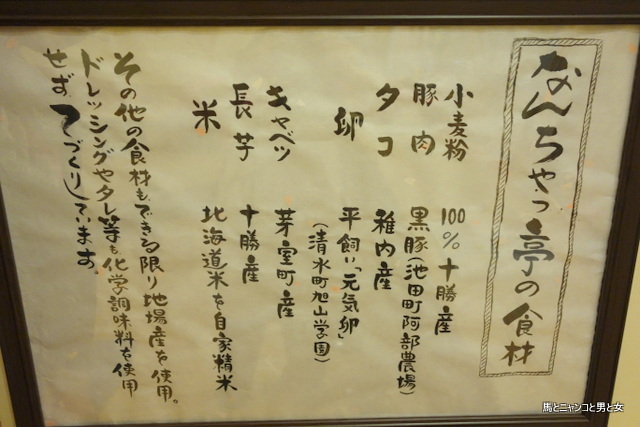 なんちゃって亭の食材
小麦粉　100％十勝産
豚肉　黒豚（池田町阿部農場）
タコ　稚内産
卵　平飼い「元気卵」
（清水町旭山学園）
キャベツ　芽室町産
長芋　十勝産
米　北海道米を自家精米
その他の食材もできる限り地場産を使用。
ドレッシングやタレ等も化学調味料を使用
せず てづくりしています。
馬とニャンコと男と女